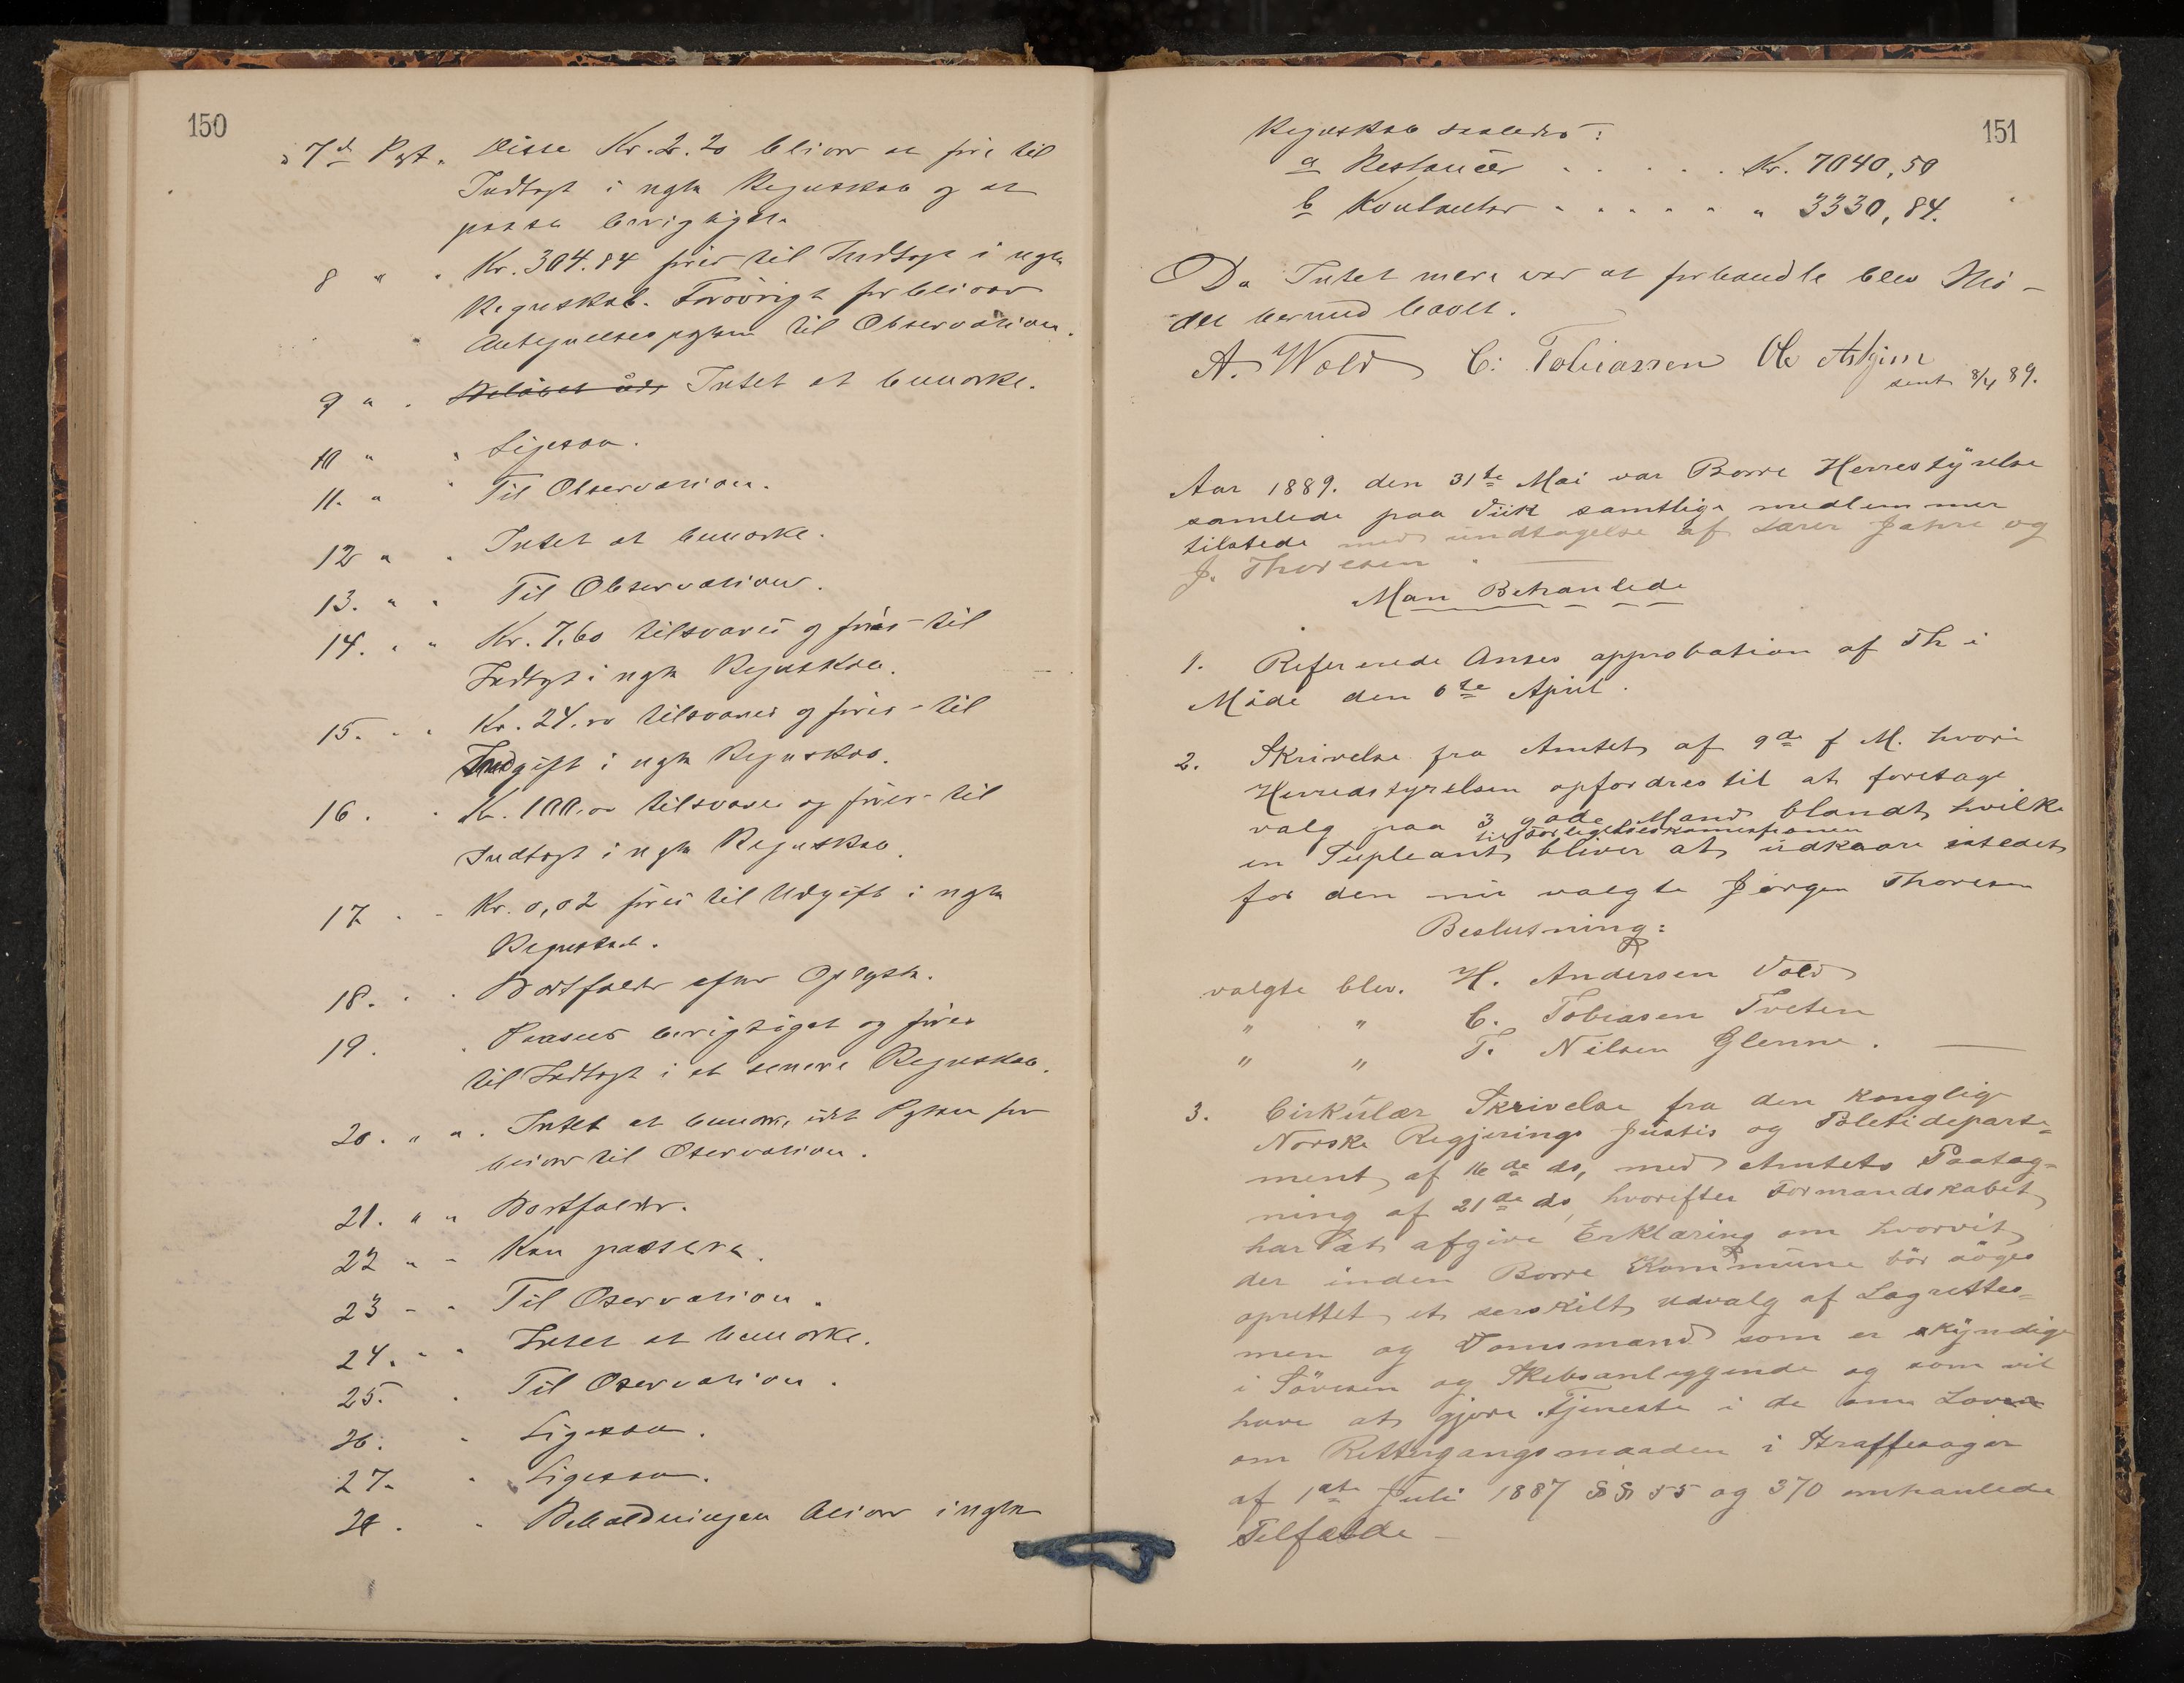 150
" 7de Post. Disse Kr. 2.20 bliver at före til
Indtægt i næste Regnskab og at
passe berigtiget.
8 " " Kr. 304.84 föres til Indtægt i næste
Regnskab. Forövrigt forbliver
Antegnelsesposten til Observation.
9 " . Beløbet Intet at bemærke.
10 " " Ligesaa.
11. " " Til Observation.
12 " . Intet at bemærke.
13. " " Til Observation.
14. " " Kr. 7.60 tilsvares og föres til
Indtægt i næste Regnskab.
15. " . Kr. 24.00 tilsvares og föres til
Indgift i næste Regnskab.
16. " Kr. 100.00 tilsvares og föres til
Indtægt i næste Regnskab.
17 . - Kr. 0,02 föres til Udgift i næste
Regnskab.
18. . . Bortfalder efter Oplyste.
19. . Passes berigtiget og föres
til Indtægt i et senere Regnskab.
20. " " . Intet at bemærke, idet Posten for
bliver til Observation.
21. " " Bortfalder.
22 " - Kan passere.
23 - - Til Observation.
24. - - Intet at bemærke.
25. . Til Observation.
26. - Ligesaa.
27. - Ligesaa.
28. - Beholdningen bliver i næste
151
Regnskab saaledes:
a Restancer . . . . . Kr. 7040,50
b Kontanter . . . . . " 3330,84.
Da Intet mere var at forhandle blev Mö-
det hermed hævet.
A. Wold C. Tobiassen Ole Askjem
sent 8/4 89.
Aar 1889. den 31te Mai var Borre Herrestyrelse
samlede paa Viik samtlige medlemmer
tilstede med undtagelse af Lærer Jahre og
J. Thoresen. —
Man Behanlede
1. Refererede Amtets approbation af Th i
Möde den 6te April.
2. Skrivelse fra Amtet af 9de f M. hvori
Herredstyrelsen opfordres til at foretage
valg paa 3 gode Mænd blandt hvilke
til Forligelseskommissionen
en Supleant bliver at udkaare istedet
for den nu valgte Jörgen Thoresen
Beslutning:
valgte blev. H. Andersen Vold
" " C. Tobiasen Tveten
" " T. Nilsen Glenne. —
3. Cirkulær Skrivelse fra den konglige
Norske Regjerings Justis og Poletideparte=
ment af 16de ds, med Amtets Paateg=
ning af 21de ds, hvorefter Formandskabet
har at afgive Erklæring om hvorvit
der inden Borre Kommune bör söges
oprettet et serskilt udvalg af Lagrettes=
men og Domsmænd som er skyndige
i Söreisen og Skibsanliggende og som vil
have at gjøre Tjeneste i de om Loven
om Rettergangsmaaden i Straffesager
af 1ste Juli 1887 §§ 55 og 370 omhanlede
Telfælde —